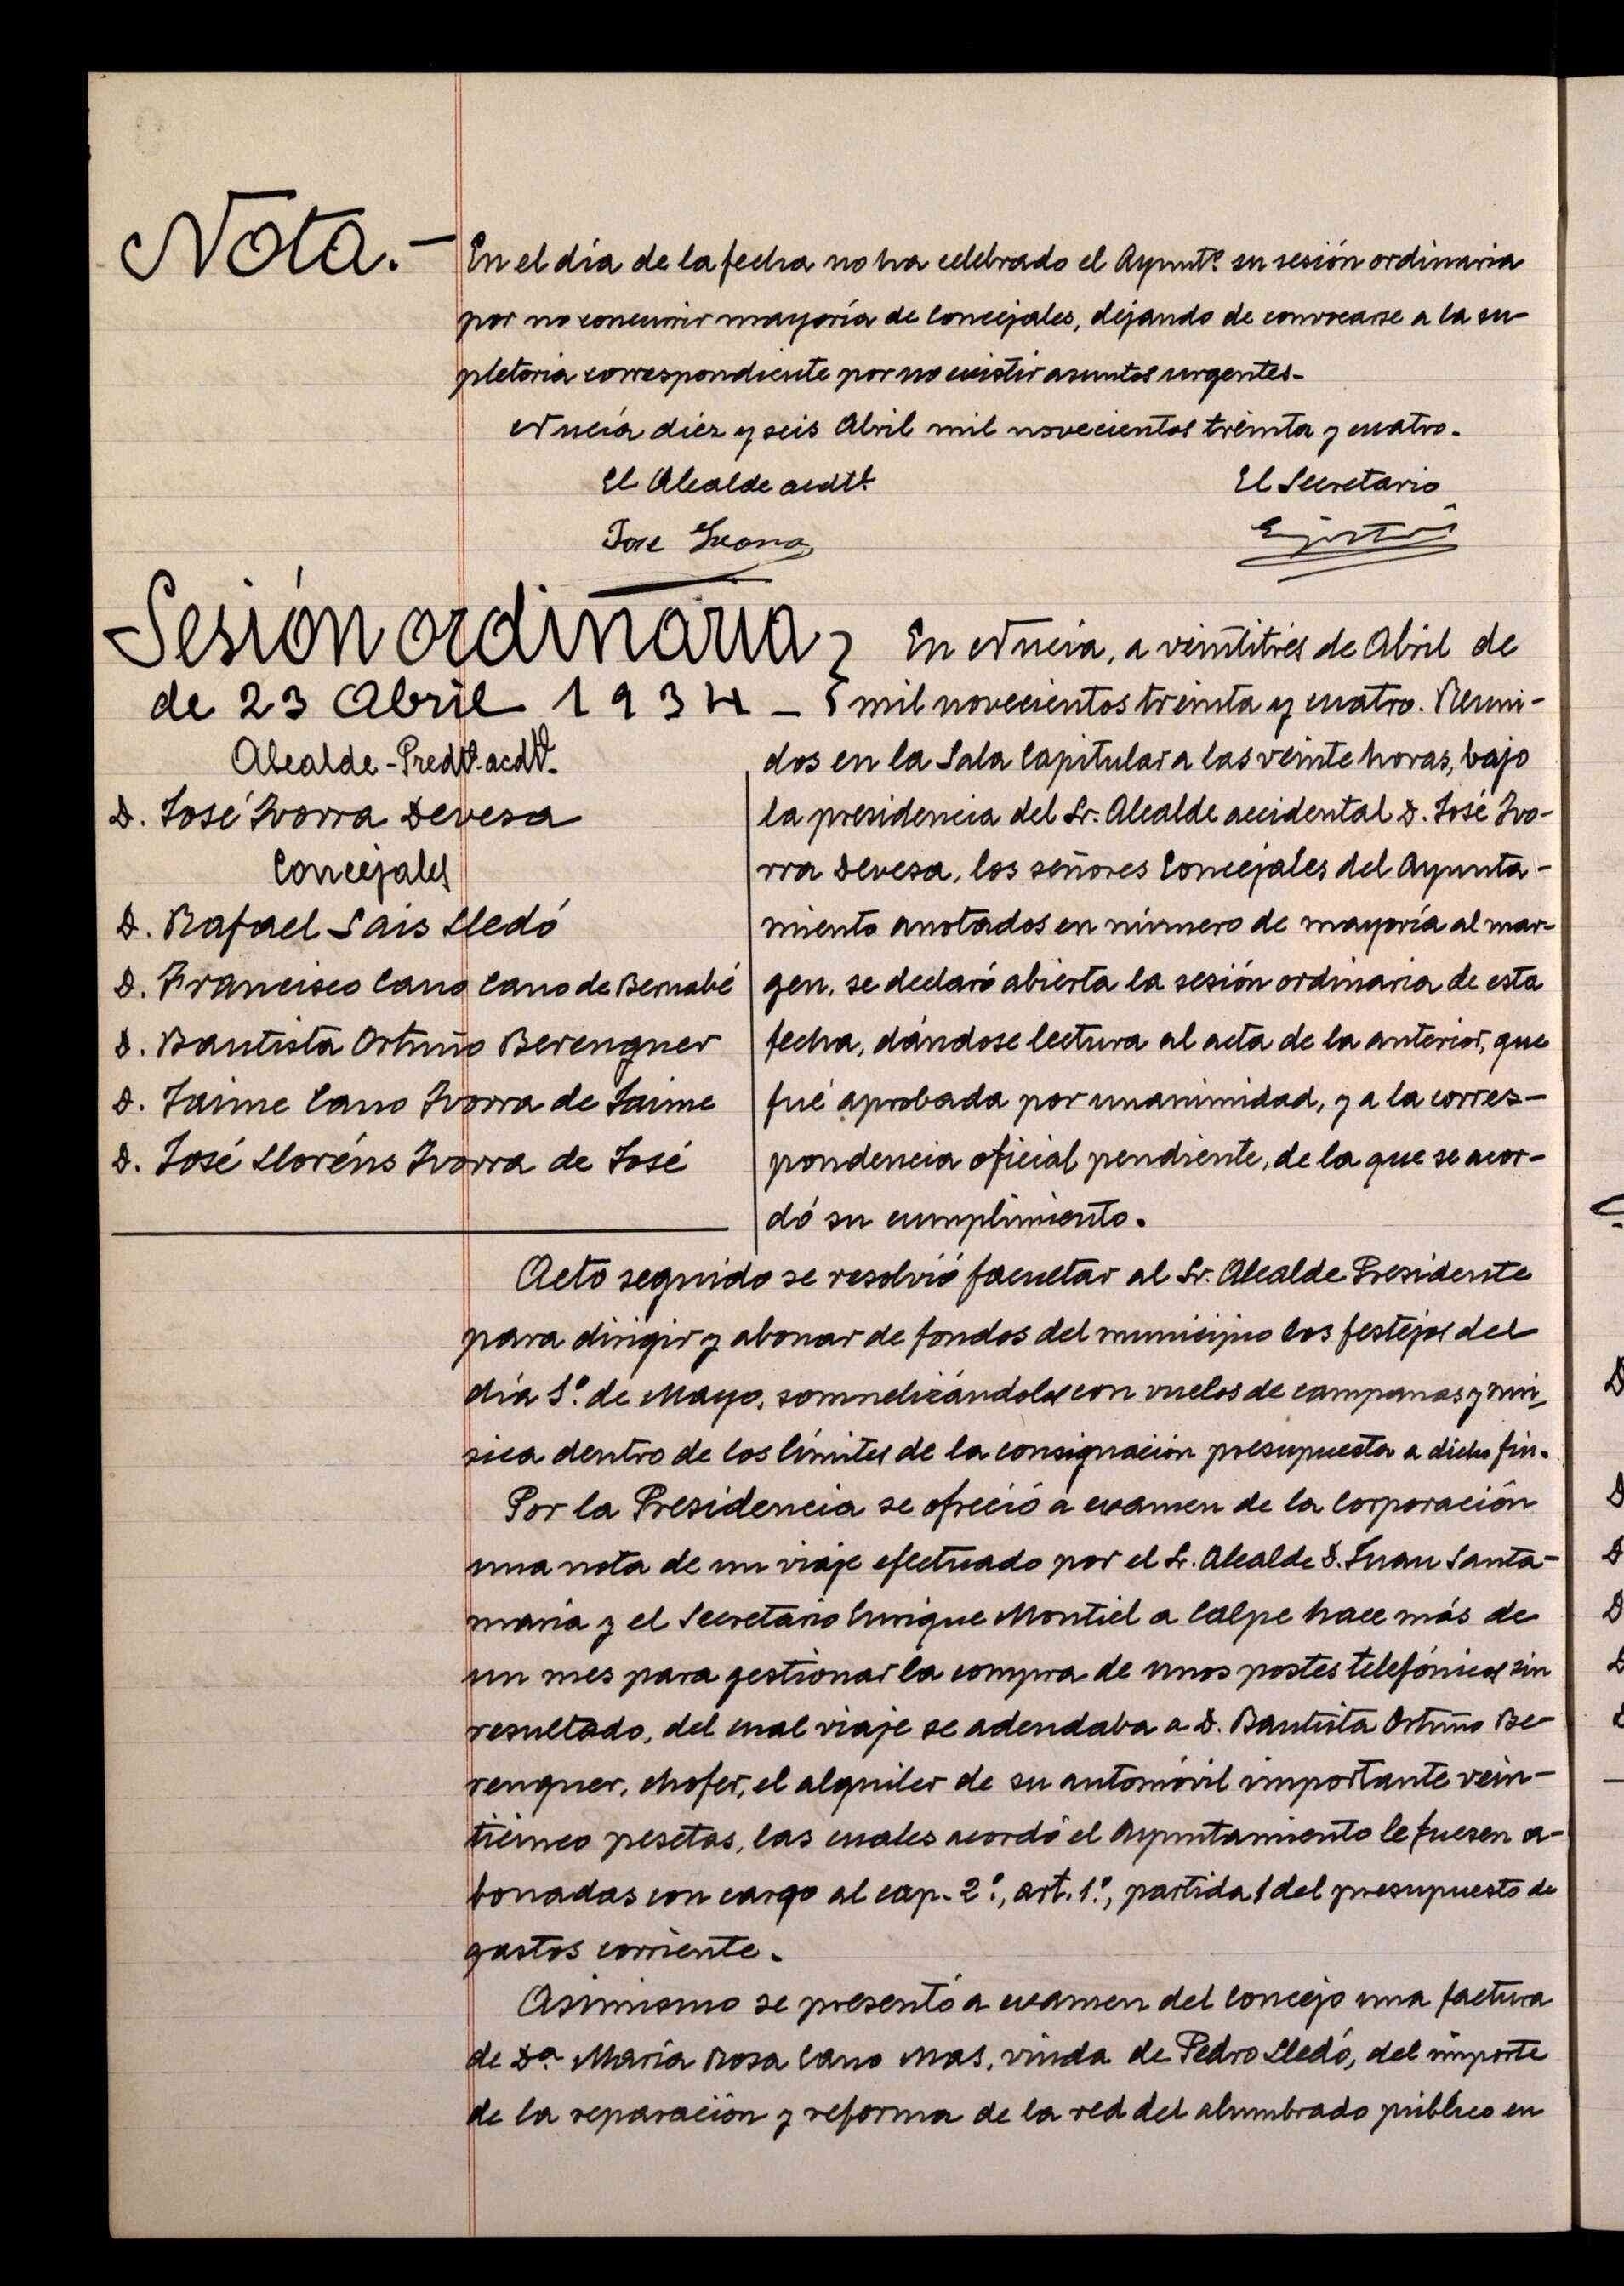 Nota.-
En el día de la fecha no ha celebrado el Ayuntº. su sesión ordinaria
por no concurrir mayoría de Concejales, dejando de convocarse a la su-
pletoria correspondiente por no existir asuntos urgentes-
Nucía diez y seis Abril mil novecientos treinta y cuatro.
El Alcalde acdtl.
El Secretario
Jose
Sesión ordinaria
de 23 Abril 1934 -
Alcalde-Predte. acdtl.
D. José Ivorra Devesa
Concejales
D. Rafael Sais Lledó
D. Francisco Cano Cano de Bernabé
D. Bautista Ortuño Berenguer
D. Jaime Cano Ivorra de Jaime
D. José Lloréns Ivorra de José
En Nucia, a veintitrés de Abril de
mil novecientos treinta y cuatro. Reuni-
dos en la Sala Capitular a las veinte horas, bajo
la presidencia del Sr. Alcalde accidental D. José Ivo-
rra Devesa, los señores Concejales del Ayunta-
miento anotados en número de mayoría al mar-
gen, se declaró abierta la sesión ordinaria de esta
fecha, dándose lectura al acta de la anterior, que
fué aprobada por unanimidad, y a la corres-
pondencia oficial pendiente, de la que se acor-
dó su cumplimiento.
Acto seguido se resolvió facultar al Sr. Alcalde Presidente
para dirigir y abonar de fondos del municipio los festejos del
día 1º. de Mayo, somnelizándoles con vuelos de campanas y mú-
sica dentro de los límites de la consignación presupuesta a dicho fin.
Por la Presidencia se ofreció a examen de la Corporación
una nota de un viaje efectuado por el Sr. Alcalde D. Juan Santa-
maria y el Secretario Enrique Montiel a Calpe hace más de
un mes para gestionar la compra de unos postes telefónicos sin
resultado, del cual viaje se adeudaba a D. Bautista Ortuño Be-
renguer, chofer, el alquiler de su automóvil importante vein-
ticinco pesetas, las cuales acordó el Ayuntamiento le fuesen a-
bonadas con cargo al cap. 2º., art. 1º., partida 1 del presupuesto de
gastos corriente.
Asimismo se presentó a examen del Concejo una factura
de Dª. María Rosa Cano Mas, viuda de Pedro Lledó, del importe
de la reparación y reforma de la red del alumbrado público en